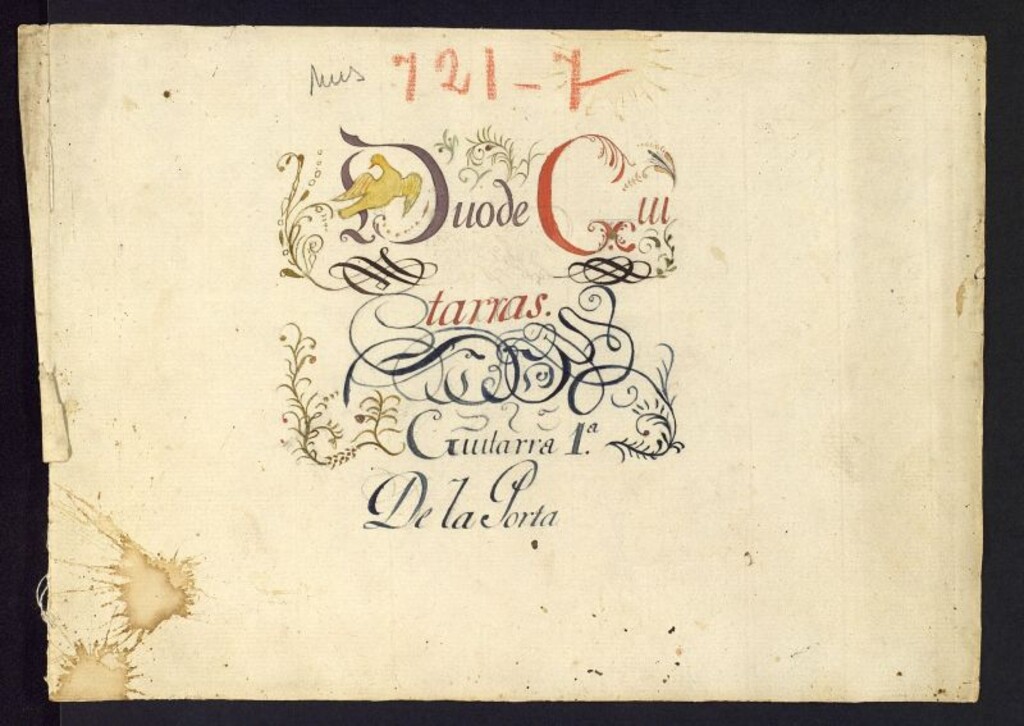 Mus 721-7
Duo de Gui
tarras.
Guitarra 1.ª
De la Porta